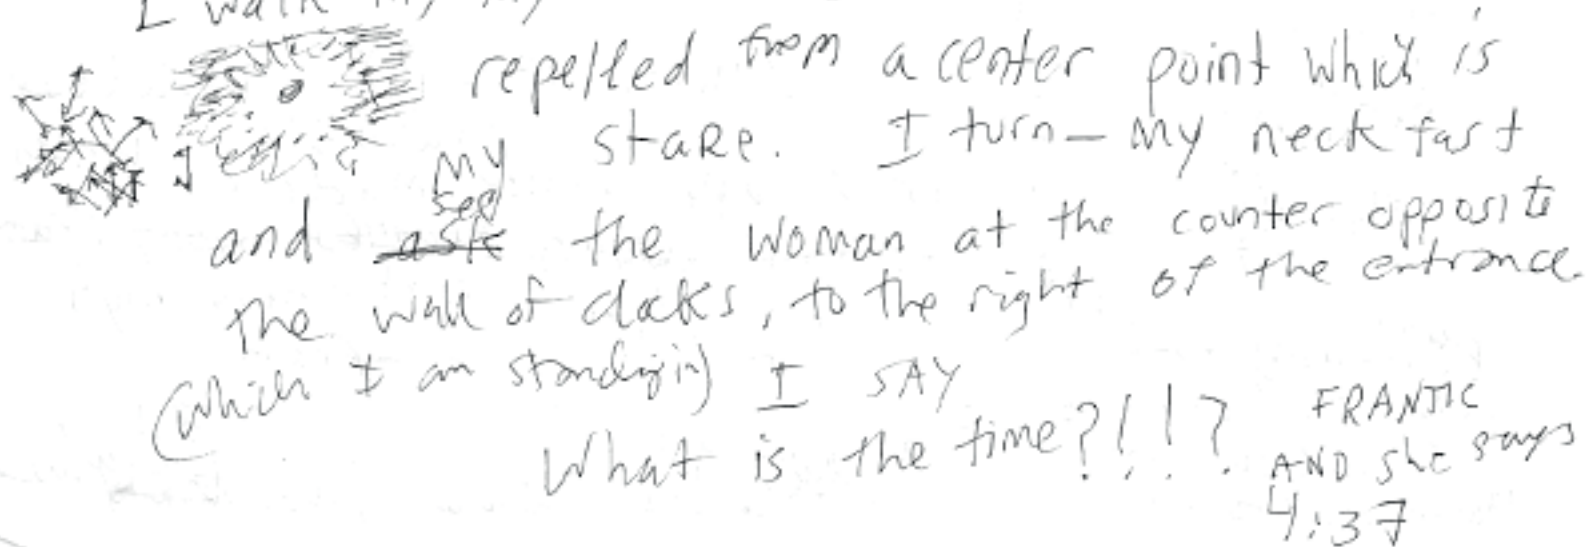 I walk my my
repelled from a center point which is
my stare. I turn - my neck fast
and ask see the woman at the counter opposite
the wall of clocks, to the right of the entrance
(which I am standing in) I SAY
What is the time?!!? FRANTIC
AND she says
4:37